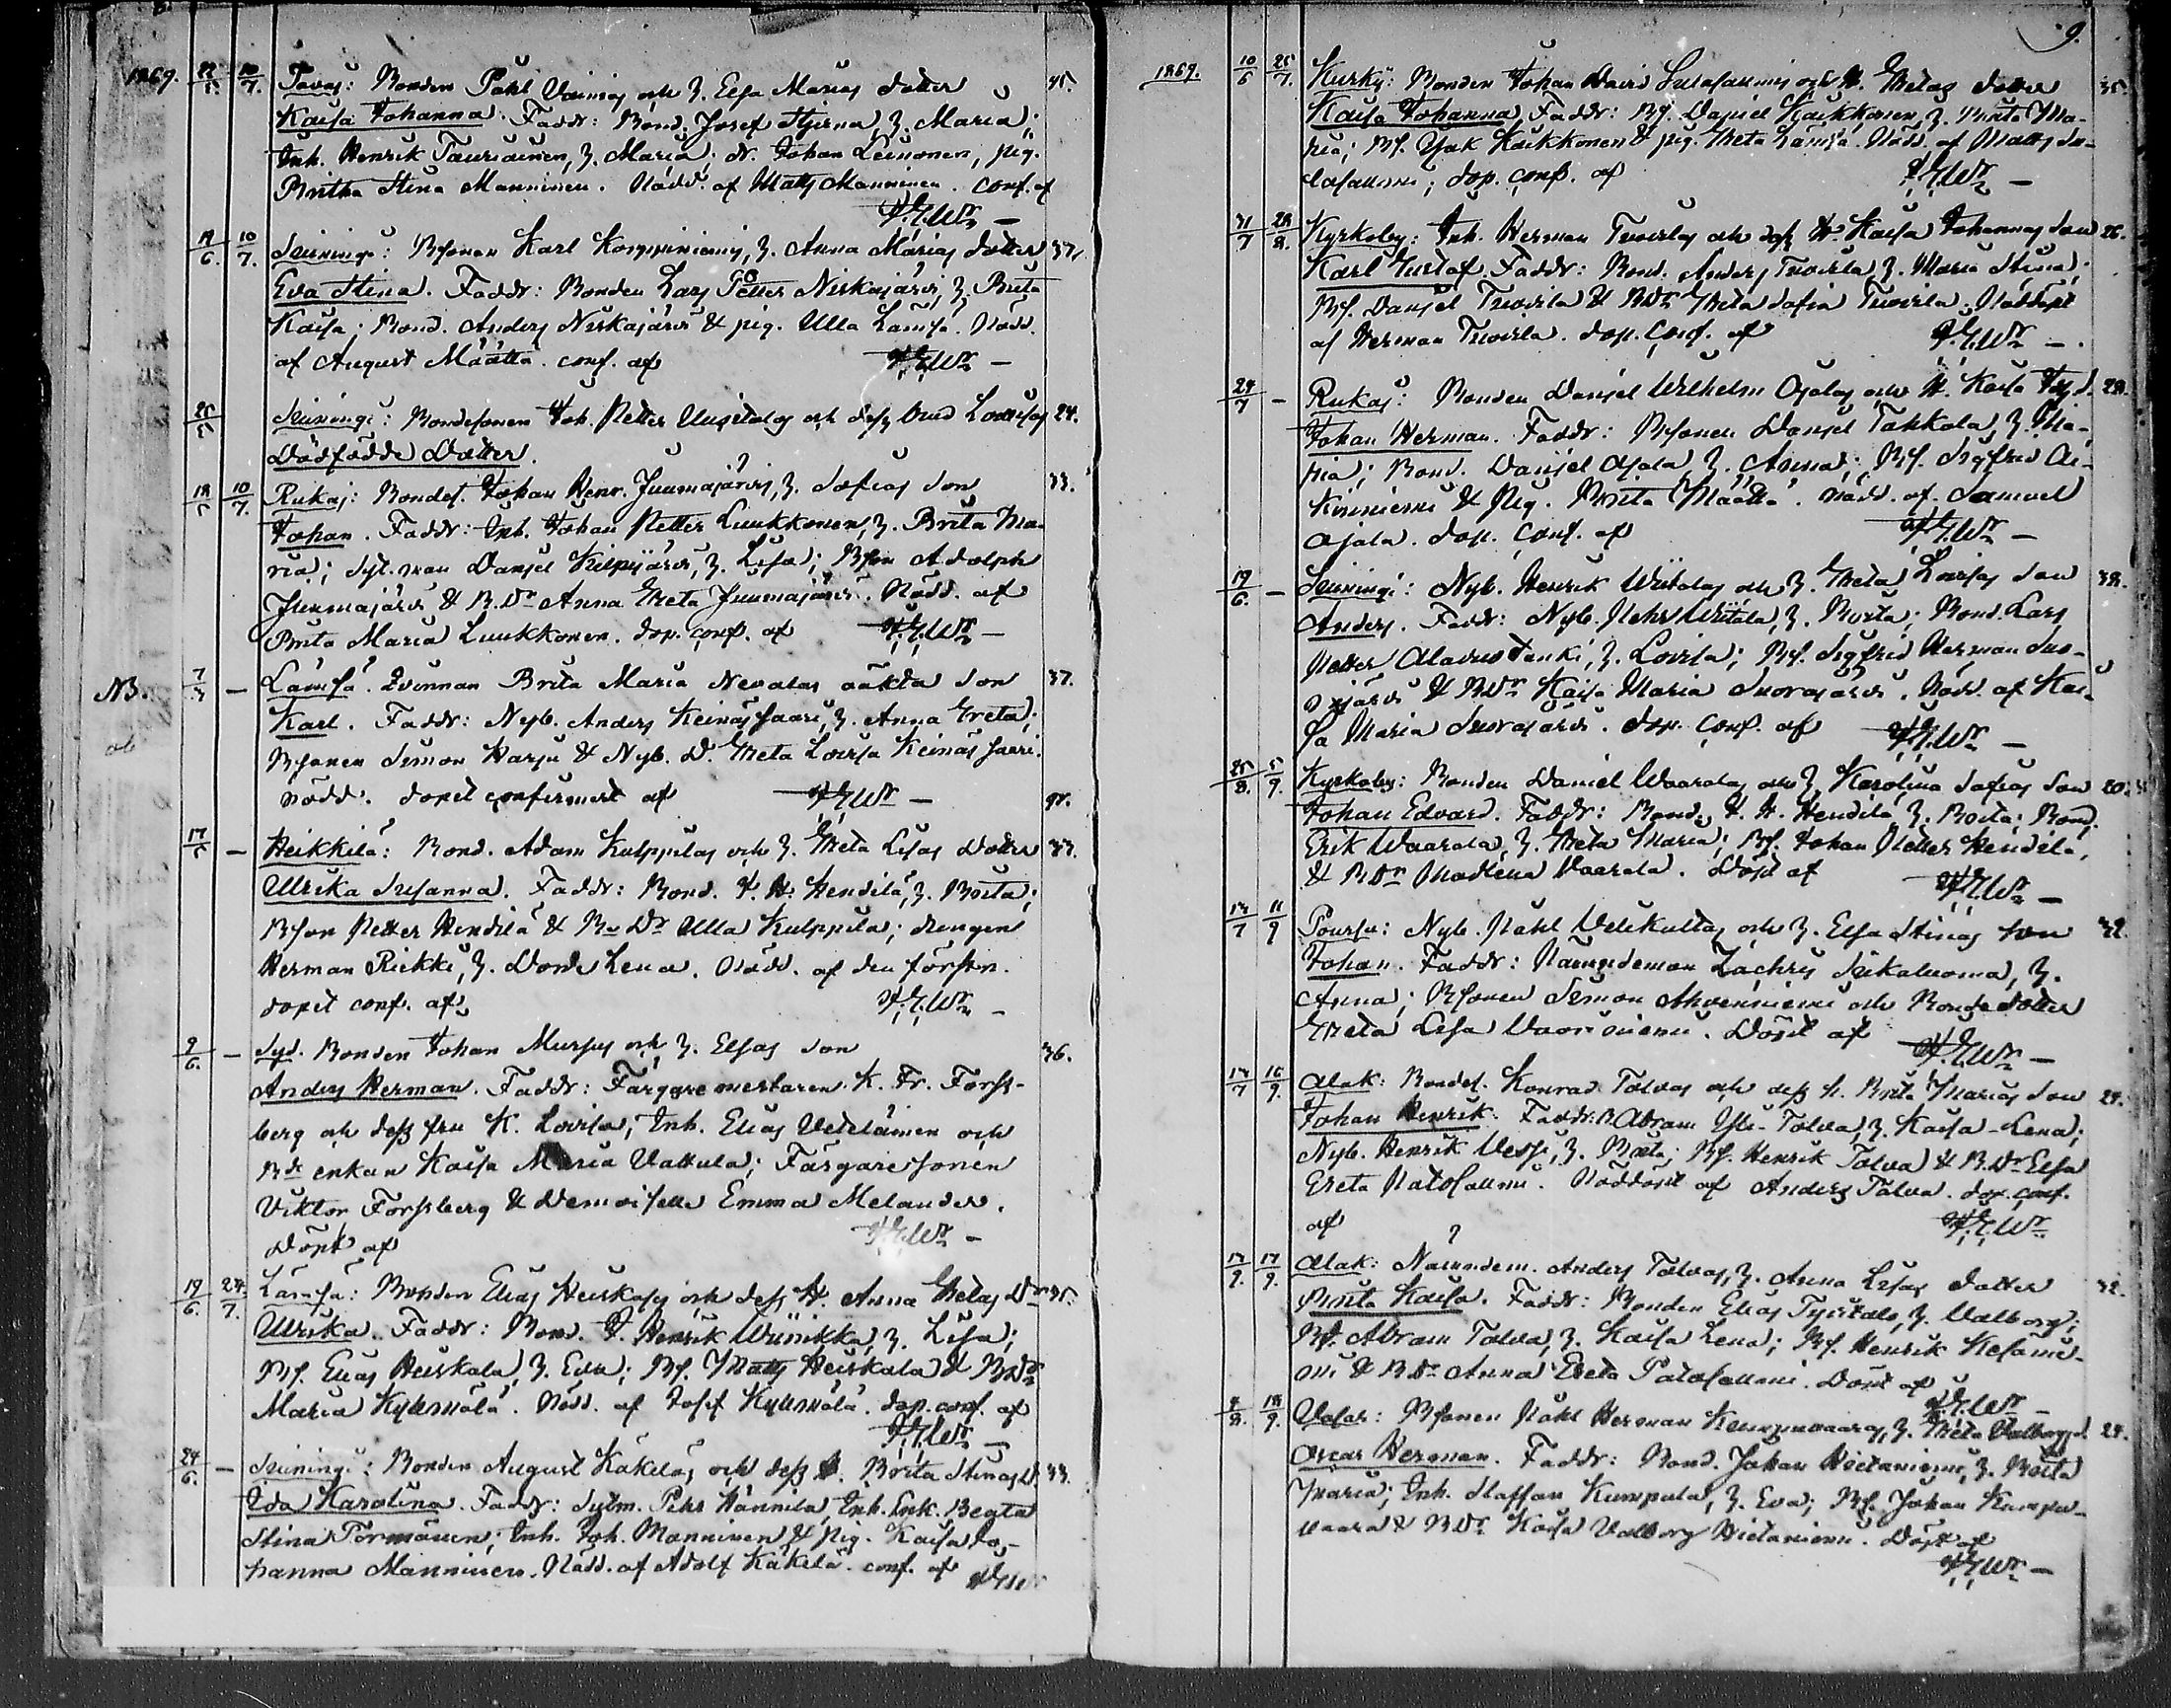 1869. 22/5. 10/7. Tavaj: Bonden Påhl Vainios och h. Elsa Marias dotter 45.
Kaisa Johanna. Faddr: Bond. Josef Stjerna, h. Maria;
Inh. Henrik Tauriainen, h. Maria; dr. Johan Leinonen, pig.
Britha Stina Manninen. Nödd. af Matts Manninen. conf. af
19/6. 10/7. Suiningi: Bsonen Karl Korppiniemis, h. Anna Marias dotter 37.
Eva Stina. Faddr: Bonden Lars Petter Niskajärvi, h. Brita
Kaisa; Bond. Anders Niskajärvi & pig. Ulla Lämsä. Nödd.
af August Määttä. conf. af
25/5 Suiningi: Bondesonen Joh. Petter Uusitalos och dess brud Lovisas 24.
Dödfödde Dotter.
18/5 10/7. Rukaj: Bondes. Johan Henr. Juumajärvis, h. Sofias Son 33.
Johan. Faddr: Inh. Johan Petter Luukkonen, h. Brita Ma-
ria; Syt.man Daniel Kilpijärvi, h. Lisa; Bson Adolph
Juumajärvi & B.Dr Anna Greta Juumajärvi. Nödd. af
Brita Maria Luukkonen. dop. conf. af
NB. 7/3 – Lämsä. Qvinnan Brita Maria Nevalas oäkta Son 37.
Karl. Faddr: Nyb. Anders Keinässaari, h. Anna Greta;
Bsonen Simon Harju & Nyb. D. Greta Lovisa Keinässaari.
Nödd. dopet confirmert af
17/5 – Heikkilä: Bond. Adam Kulppilas och h. Greta Lisas Dotter 33.
Ulrika Susanna. Faddr: Bond. J. H. Hendilä, h. Brita;
Bson Petter Hendilä & B. Dr Ulla Kulppila; drengen
Herman Riekki, h. Dorde Lena. Nödd. af den försten.
dopet conf. af
9/6. – Syd. Bonden Johan Mursus och h. Elsas Son 36.
Anders Herman. Faddr: Färgaremestaren K. Fr. Forss-
berg och dess fru K. Lovisa; Inh. Elias Veteläinen och
Bde enkan Kaisa Maria Vattula; Färgaresonen
Viktor Forssberg & Demoiselle Emma Melander.
Döpt af
19/6. 24/7. Lämsä: Bonden Elias Heiskasis och dess H. Anna Gretas Dr 35.
Ulrika. Faddr: Bond. J. Henrik Wiinikka, h. Lisa;
Bs. Elias Heiskala, h. Eva; Bs. Matts Heiskala & BDr
Maria Kyllmälä. Nödd. af Josef Kyllmälä. dop. conf. af
24/6. – Suiningi: Bonden August Käkeläs och dess h. Brita Stinas D. 33.
Ida Karolina. Faddr: Sytm. Pehr Hannila, Inh. Enk. Begta
Stina Törmänen; Inh. Joh. Manninen & pig. Kaisa Jo-
hanna Manninen. Nödd. af Adolf Käkelä. conf. af
9.
1869. 10/6 25/7. Kurki: Bonden Johan David och H. Gretas dotter 35.
Kaisa Johanna. Faddr: Bs. Daniel Kaikkonen, h. Brita Ma-
ria; Bs. Isak Kaikkonen & pig. Greta Lämsä. Nödd. af Matts
dop. conf. af
31/7 28/8. Kyrkoby: Inh. Herman Tuovilas och dess H. Kaisa Johannas Son 26.
Karl Gustaf. Faddr: Bond. Anders Tuovila, h. Maria Stina;
Bs. Daniel Tuovila & BDr Greta Sofia Tuovila. Nöddöpt
af Herman Tuovila. dop. conf. af
24/7 – Rukaj: Bonden Daniel Wilhelm Ojalas och H. Kaisa 28.
Johan Herman. Faddr: Bsonen Daniel Takkala, h. Ma-
ria; Bond. Daniel Ojala, h. Anna; Bs. Sigfrid Ai-
kiniemi & Pig. Brita Määttä. Nödd. af Samuel
Ojala. dop. conf. af
19/6. – Suiningi: Nyb. Henrik Wiitalas och h. Greta Lovisas Son 38.
Anders. Faddr: Nyb. Pehr Wiitala, h. Brita; Bond. Lars
Petter Alavuotunki, h. Lovisa; Bs. Sigfrid Herman Suo-
rajärvi & BDr Kaisa Maria Suorajärvi. Nödd. af Kai-
sa Maria Suorajärvi. dop. conf. af
25/8. 5/9. Kyrkoby: Bonden Daniel Waaralas och h. Karolina Sofias Son
Johan Edvard. Faddr: Bond. J. H. Hendilä, h. Brita; Bond.
Erik Waarala, h. Greta Maria; Bs. Johan Petter Hendilä,
& BDr Madlena Vaarala. Döpt af
17/7 11/9 Poursu: Nyb. Påhl Welikultas och h. Elsa Stinas Son
Johan. Faddr: Nämndeman Zachris Siikaluoma, h.
Anna; Bsonen Simon Ahvenniemi och Bonde dotter
Greta Lisa Vaarniemi. Döpt af
17/7 16/9. Alak: Bondes. Konrad Tolvas och dess h. Brita Marias Son 24.
Johan Henrik. Faddr: B. Abram Yli-Tolva, h. Kaisa-Lena;
Nyb. Henrik Vessi, h. Brita; Bs. Henrik Tolva & B.Dr Elsa
Greta Patosalmi. Nöddöpt af Anders Tolva. dop. conf.
af
17/9. 17/9. Alak: Nämndem. Anders Tolvas, h. Anna Lisas Dotter 42.
Brita Kaisa. Faddr: Bonden Elias Tyritalo, h. Valborg;
Bs. Abram Tolva, h. Kaisa Lena; Bs. Henrik Kesänie-
mi & BDr Anna Greta Patosalmi. Döpt af
8/8. 18/9. Vasar: Bsonen Påhl Herman Kumpuvaaras, h. Greta Valborgs 24.
Oscar Herman. Faddr: Bond. Johan Hietaniemi, h. Brita
Maria; Inh. Staffan Kumpula, h. Eva; Bs. Johan Kumpu-
vaara & BDr Kaisa Valborg Hietaniemi. Döpt af